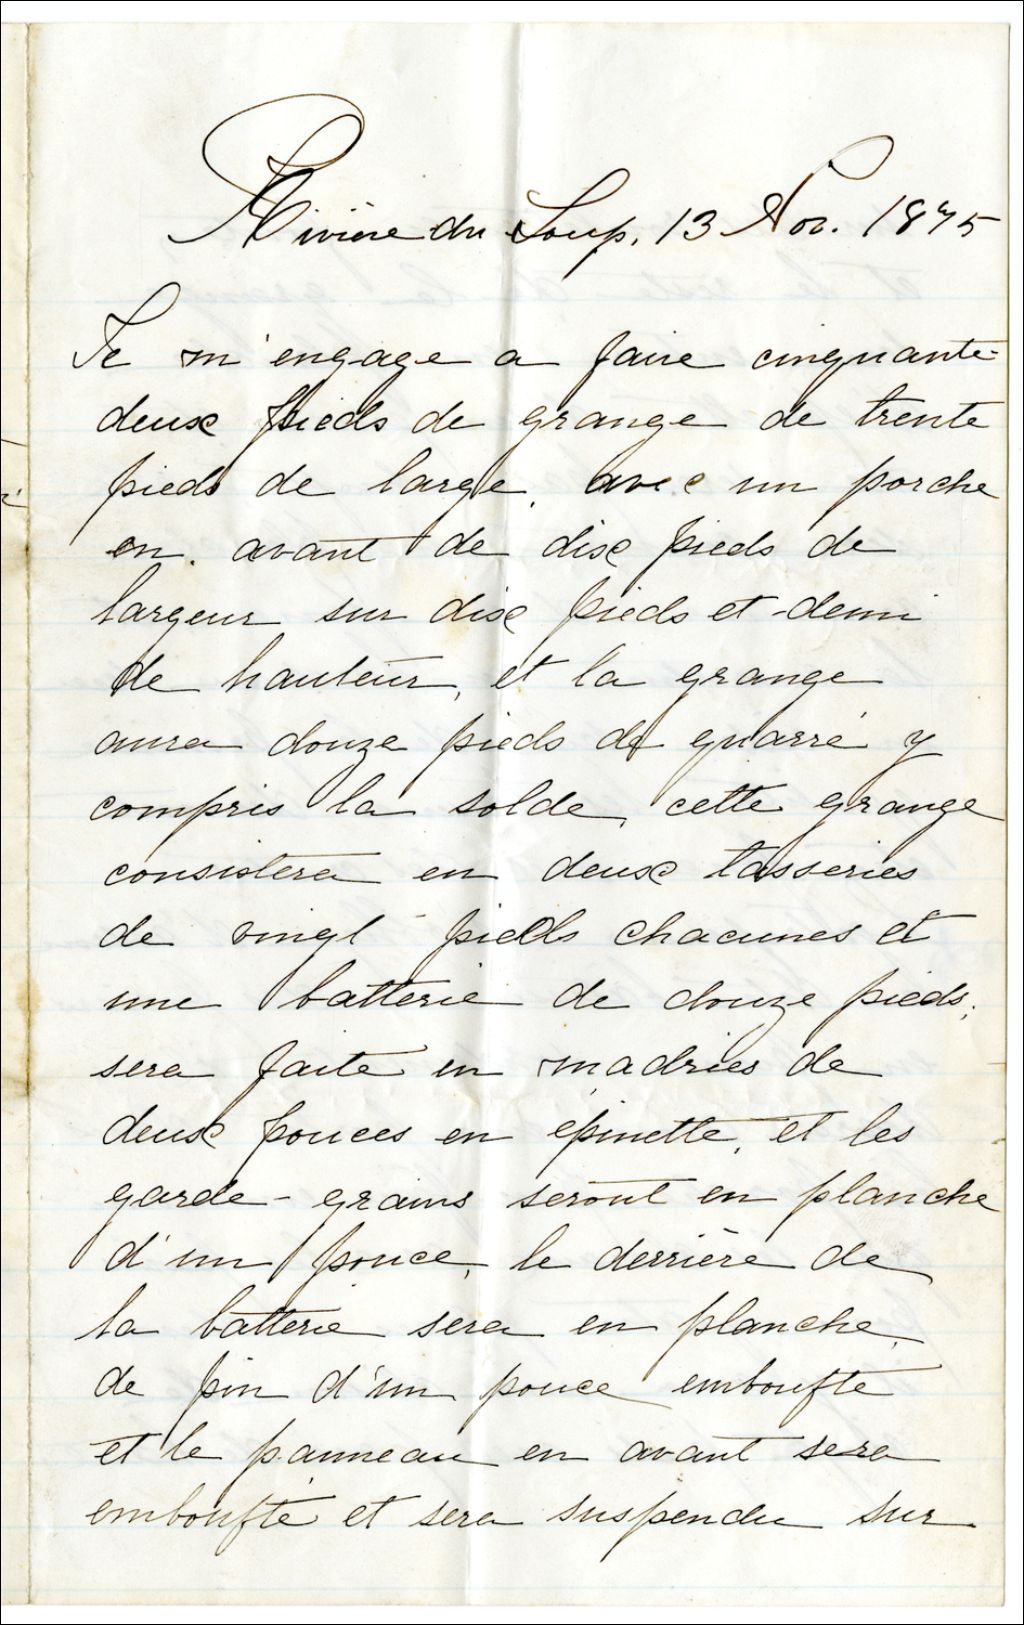 Rivière du Loup, 13 Nov. 1875
Je m'engage a faire cinquante-
deux pieds de grange de trente
pieds de large, avec un porche
en avant de dix pieds de
largeur sur dix pieds et demi
de hauteur, et la grange
aura douze pieds de quarré y
compris la solde, cette grange
consistera en deux tasseries
de vingt pieds chacunes et
une batterie de douze pieds,
sera faite en madries de
deux pouces en épinette, et les
garde-grains seront en planche
d'un pouce, le derrière de
la batterie sera en planche
de pin d'un pouce emboufté
et le panneau en avant sera
emboufté et sera suspendu sur